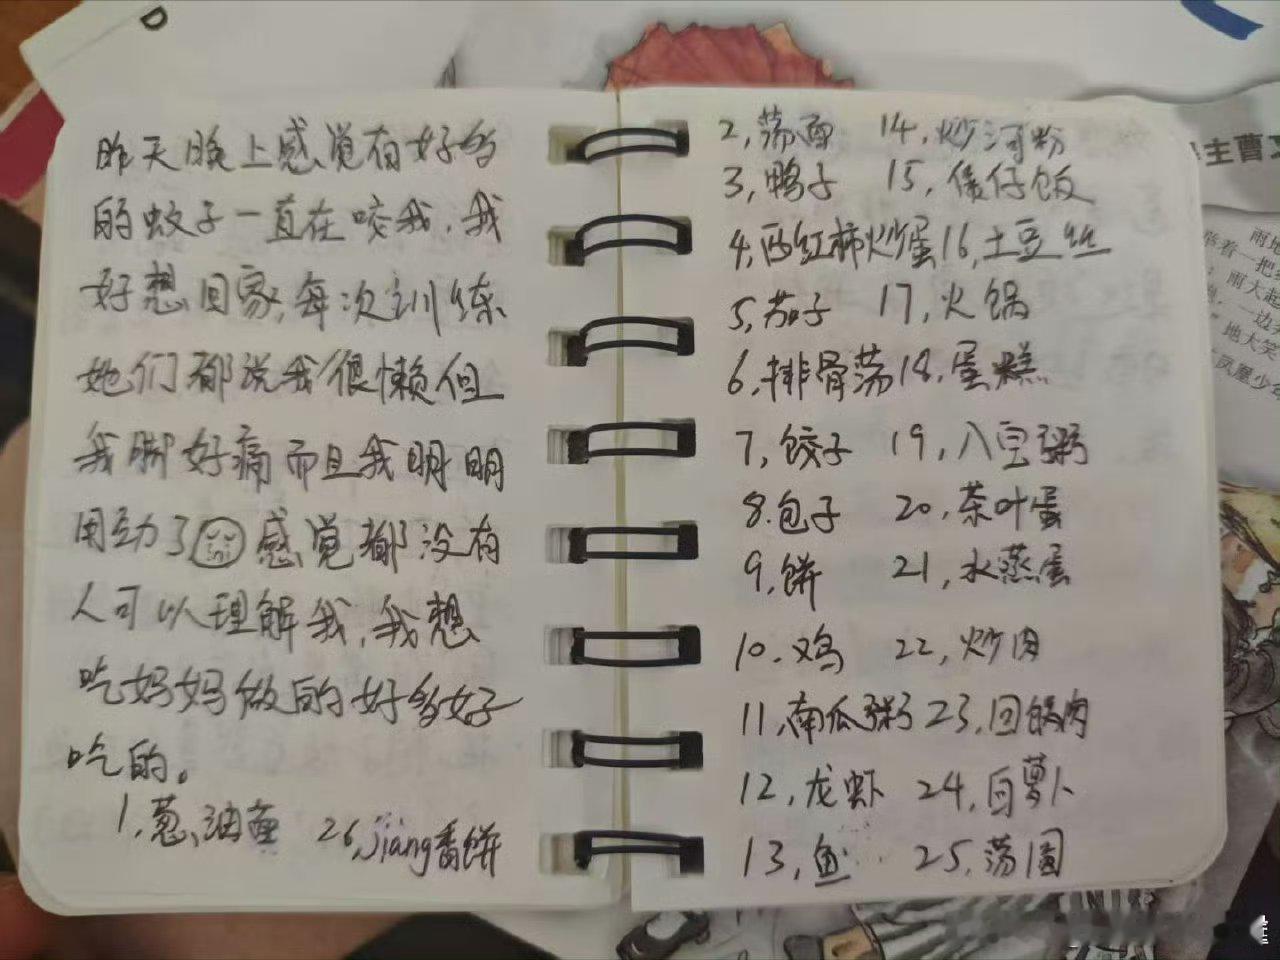 昨天晚上感觉有好多
的蚊子一直在咬我，我
好想回家，每次训练
她们都说我很懒但
我脚好痛而且我明明
用劲了感觉都没有
人可以理解我，我想
吃妈妈做的好多好
吃的。
1，葱油面 26，jiang香饼
2，荡面 14，炒河粉
3，鸭子 15，煲仔饭
4，西红柿炒蛋 16，土豆丝
5，茄子 17，火锅
6，排骨荡 18，蛋糕
7，饺子 19，八宝粥
8.包子 20，茶叶蛋
9，饼 21，水蒸蛋
10.鸡 22，炒肉
11，南瓜粥 23，回锅肉
12，龙虾 24，白萝卜
13，鱼 25，荡圆
主曹
着一把
雨大起
一边
地大笑
凤凰少年
D